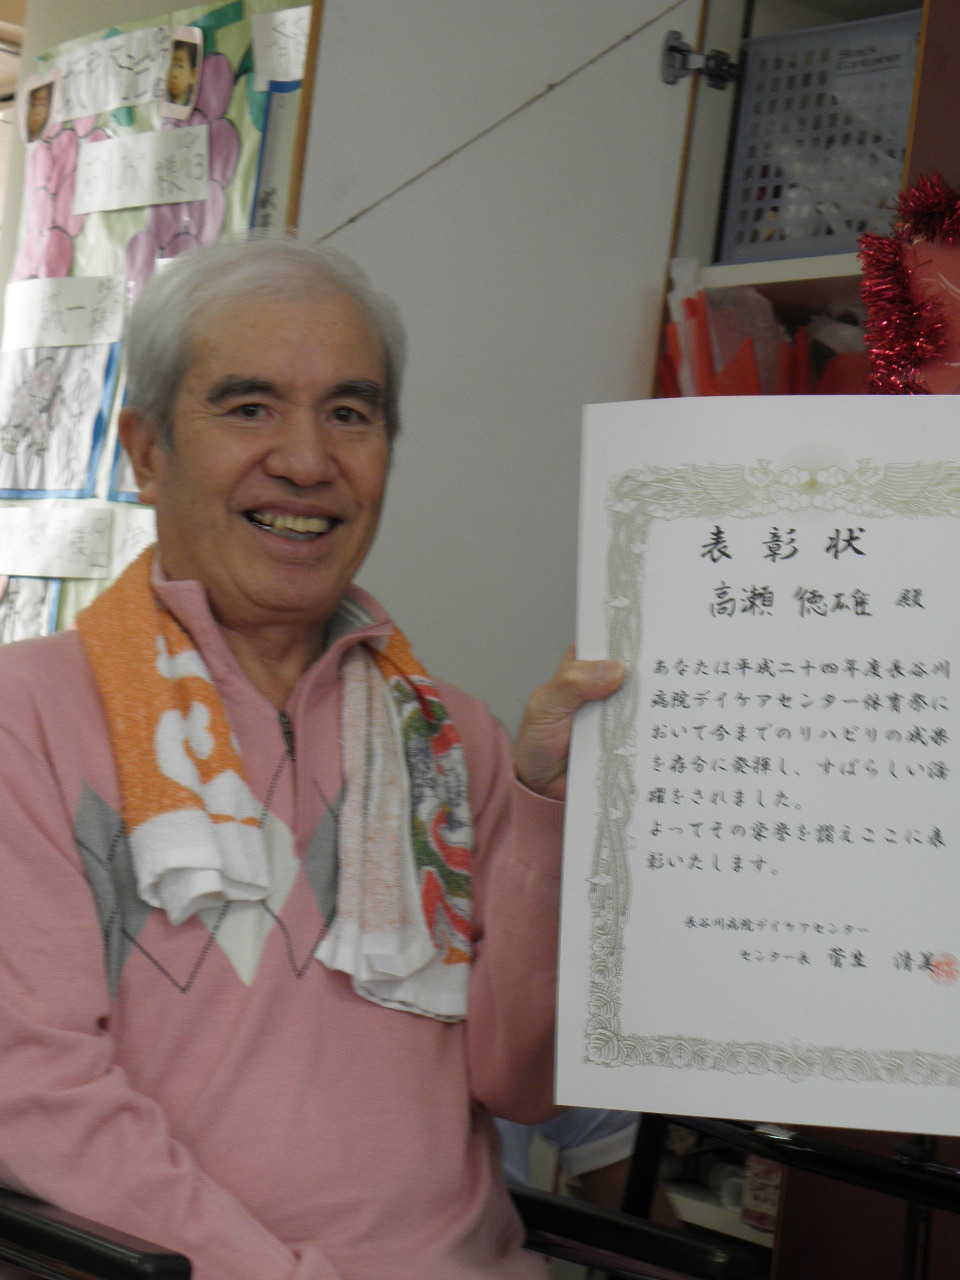 表彰状
高瀬 徳雄 殿
あなたは平成二十四年度長谷川
病院デイケアセンター体育祭に
おいて今までのリハビリの成果
を存分に発揮し、すばらしい活
躍をされました。
よってその栄誉を讃えここに表
彰いたします。
長谷川病院デイケアセンター
センター長 菅生 清美